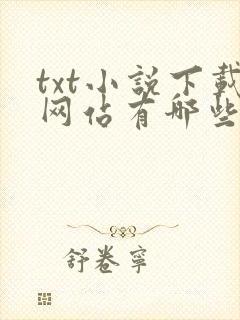 txt小説下載
网佔有哪些
舒卷寧